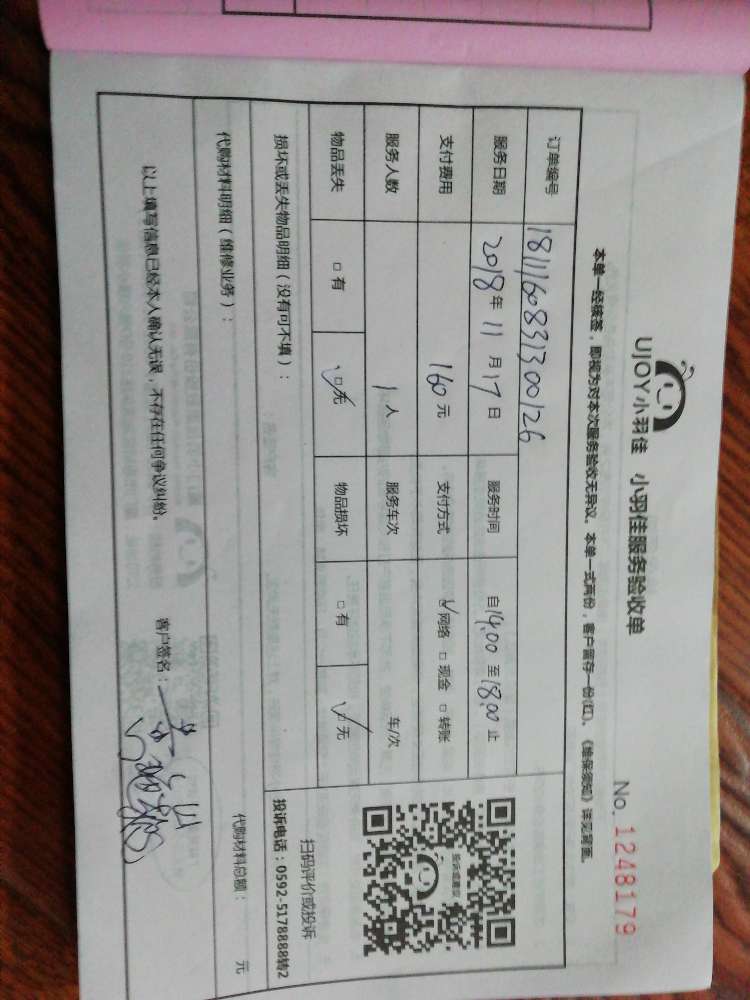 UJOY小羽佳 小羽佳服务验收单
No. 1248179
本单一经核签，即视为对本次服务验收无异议。本单一式两份，客户留存一份(红)。《维保须知》详见背面。
订单编号 1811160831300126
服务日期 2018年 11 月 17 日 服务时间 自14:00 至18:00 止
支付费用 160元 支付方式 ☑网络 □ 现金 □ 转账
服务人数 1 人 服务车次 车/次
物品丢失 □ 有 ☑无 物品损坏 □ 有 ☑无
损坏或丢失物品明细（没有可不填）：
扫码评价或投诉
投诉电话：0592-5178888转2
代购材料明细（维修业务）：
代购材料总额： 元
以上填写信息已经本人确认无误，不存在任何争议纠纷。
客户签名：